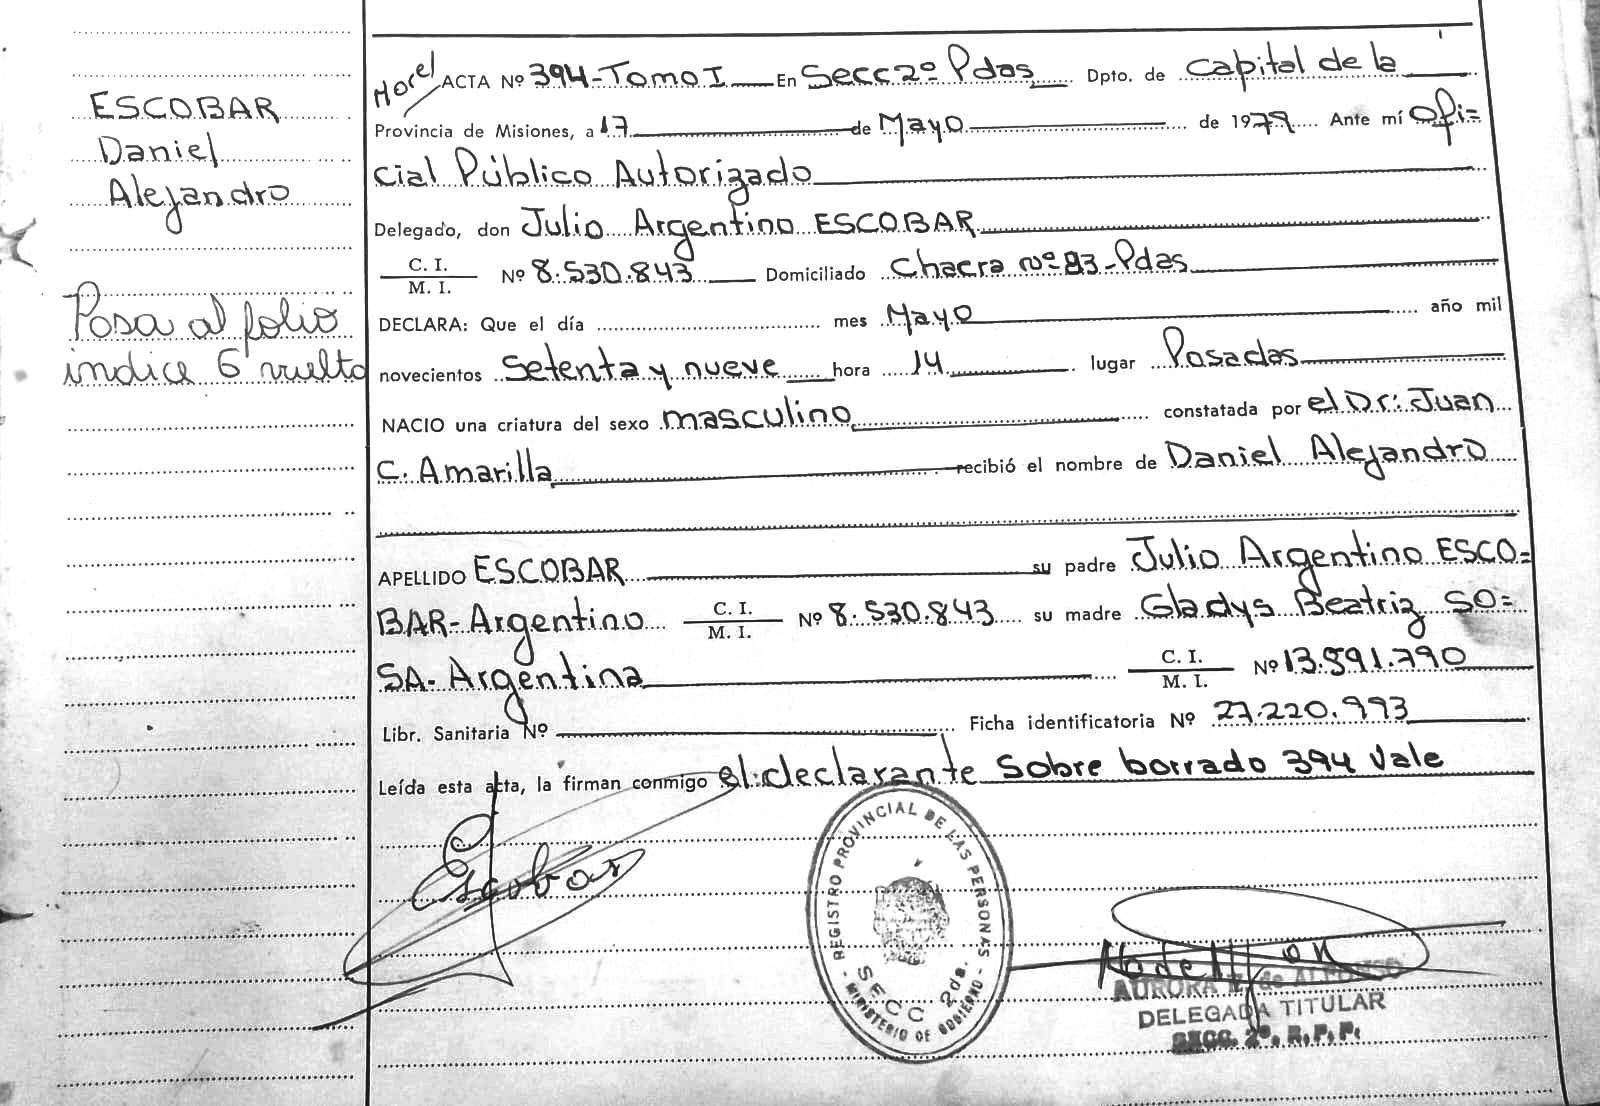 ESCOBAR
Daniel
Alejandro
Pasa al folio
indice 6 vuelta
Morel
ACTA Nº 394-Tomo I En Secc 2º Pdas Dpto. de Capital de la
Provincia de Misiones, a 17 de Mayo de 1979 Ante mí Ofi=
cial Público Autorizado
Delegado, don Julio Argentino ESCOBAR
C. I.
M. I.
Nº 8.530.843 Domiciliado Chacra nº 83-Pdas
DECLARA: Que el día mes Mayo año mil
novecientos Setenta y nueve hora 14 lugar Posadas
NACIO una criatura del sexo masculino constatada por el Dr: Juan
C. Amarilla recibió el nombre de Daniel Alejandro
APELLIDO ESCOBAR su padre Julio Argentino ESCO=
BAR-Argentino C. I. M. I. Nº 8.530.843 su madre Gladys Beatriz SO=
SA-Argentina C. I. M. I. Nº 13.591.790
Libr. Sanitaria Nº Ficha identificatoria Nº 27.220.993
Leída esta acta, la firman conmigo el declarante Sobre borrado 394 Vale
Escobar
REGISTRO PROVINCIAL DE LAS PERSONAS
SECC 2da.
MINISTERIO DE GOBIERNO
AURORA de ALFONSO
DELEGADA TITULAR
SECC. 2º, R. P. P.